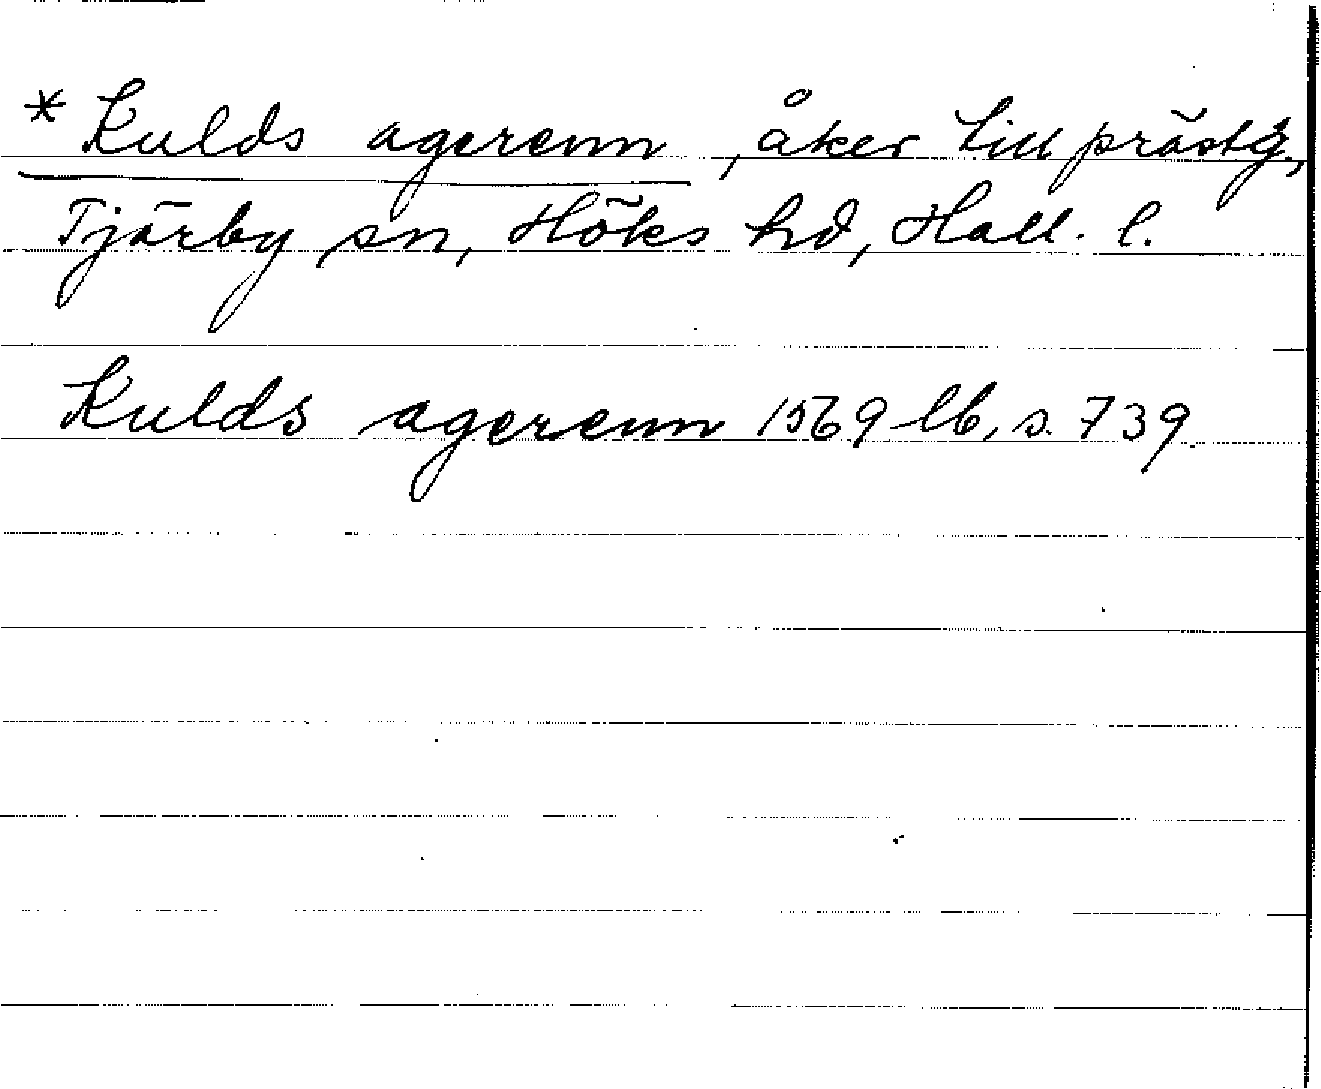 * Kulds agerenn, åker till prästg.,
Tjärby sn, Höks hd, Hall. l.
Kulds agerenn 1569 lb, s. 739